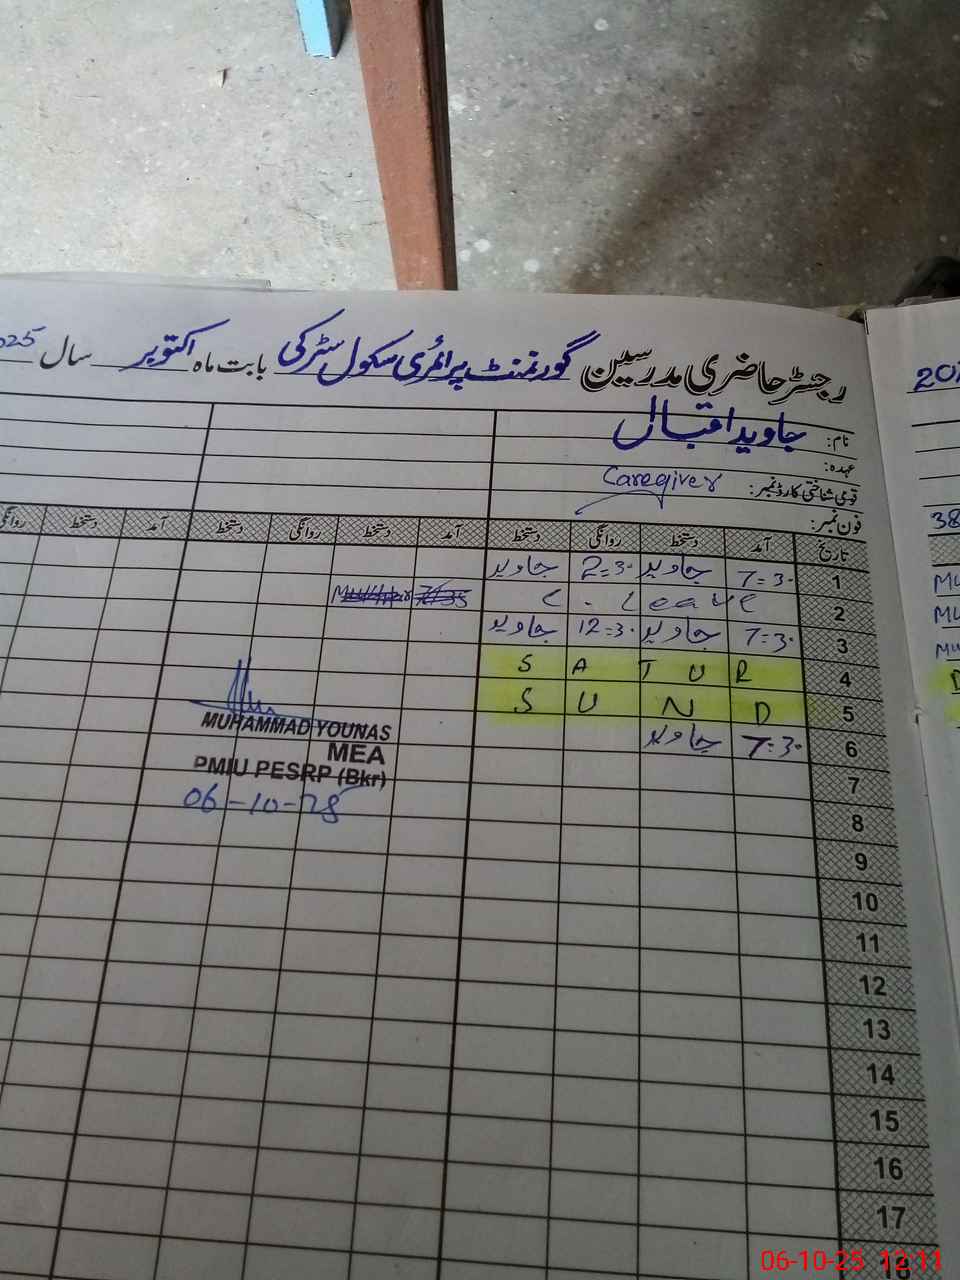 رجسٹر حاضری مدرسین گورنمنٹ پرائمری سکول سٹرکی بابت ماہ اکتوبر سال 2025
نام: جاوید اقبال
عہدہ:
قومی شناختی کارڈ نمبر: Caregiver
فون نمبر:
تاریخ آمد دستخط روانگی دستخط آمد دستخط روانگی دستخط آمد دستخط روانگی
1 7=30 جاوید 2=30 جاوید
2 C. Leave
3 7=30 جاوید 12=30 جاوید
4 S A T U R
5 S U N D
6 7=30 جاوید
7
8
9
10
11
12
13
14
15
16
17
MUHAMMAD YOUNAS
MEA
PMIU PESRP (Bkr)
06-10-25
202
38
06-10-25 12:11